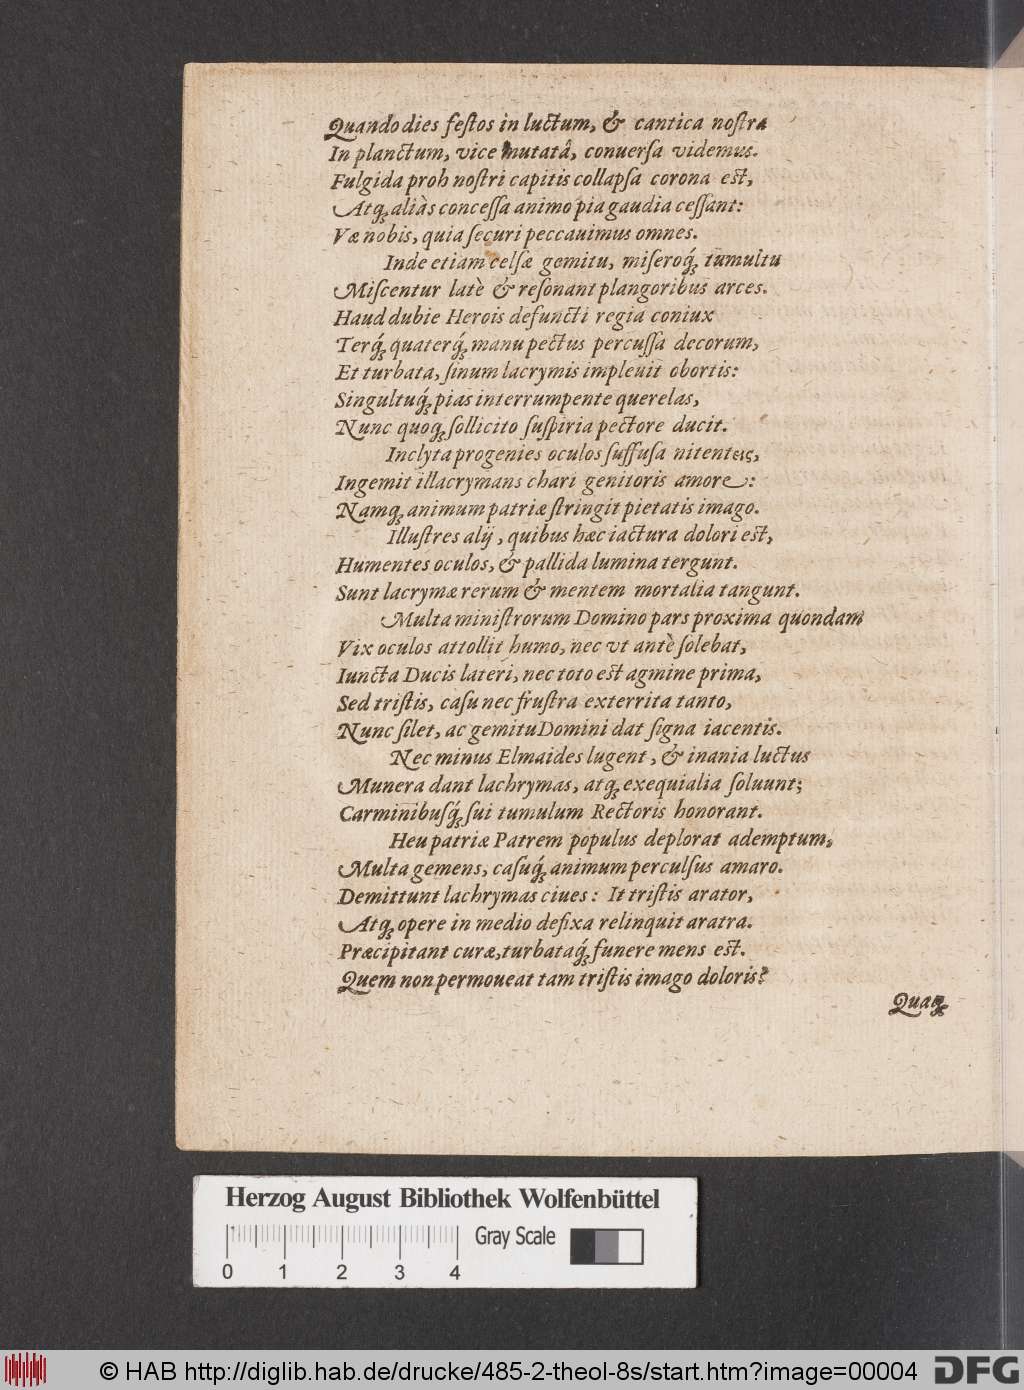 Quando dies feſtos in luctum, & cantica noſtra
In planctum, vice mutatâ, conuerſa videmus.
Fulgida proh noſtri capitis collapſa corona eſt,
Atq́; aliàs conceſſa animo pia gaudia ceſſant:
Væ nobis, quia ſecuri peccauimus omnes.
Inde etiam celſæ gemitu, miſeroq́; tumultu
Miſcentur latè & reſonant plangoribus arces.
Haud dubie Herois defuncti regia coniux
Terq́; quaterq́; manu pectus percuſſa decorum,
Et turbata, ſinum lacrymis impleuit obortis:
Singultuq́; pias interrumpente querelas,
Nunc quoq; ſollicito ſuſpiria pectore ducit.
Inclyta progenies oculos ſuffuſa nitenteis,
Ingemit illacrymans chari genitoris amore:
Namq; animum patriæ ſtringit pietatis imago.
Illuſtres alij, quibus hæc iactura dolori eſt,
Humentes oculos, & pallida lumina tergunt.
Sunt lacrymæ rerum & mentem mortalia tangunt.
Multa miniſtrorum Domino pars proxima quondam
Vix oculos attollit humo, nec vt antè ſolebat,
Iuncta Ducis lateri, nec toto eſt agmine prima,
Sed triſtis, caſu nec fruſtra exterrita tanto,
Nunc ſilet, ac gemitu Domini dat ſigna iacentis.
Nec minus Elmaides lugent, & inania luctus
Munera dant lachrymas, atq; exequialia ſoluunt;
Carminibuſq́; ſui tumulum Rectoris honorant.
Heu patriæ Patrem populus deplorat ademptum,
Multa gemens, caſuq́; animum perculſus amaro.
Demittunt lachrymas ciues: It triſtis arator,
Atq; opere in medio defixa relinquit aratra.
Præcipitant curæ, turbataq́; funere mens eſt.
Quem non permoueat tam triſtis imago doloris?
Quaq;
Herzog August Bibliothek Wolfenbüttel
Gray Scale
0 1 2 3 4
© HAB http://diglib.hab.de/drucke/485-2-theol-8s/start.htm?image=00004
DFG